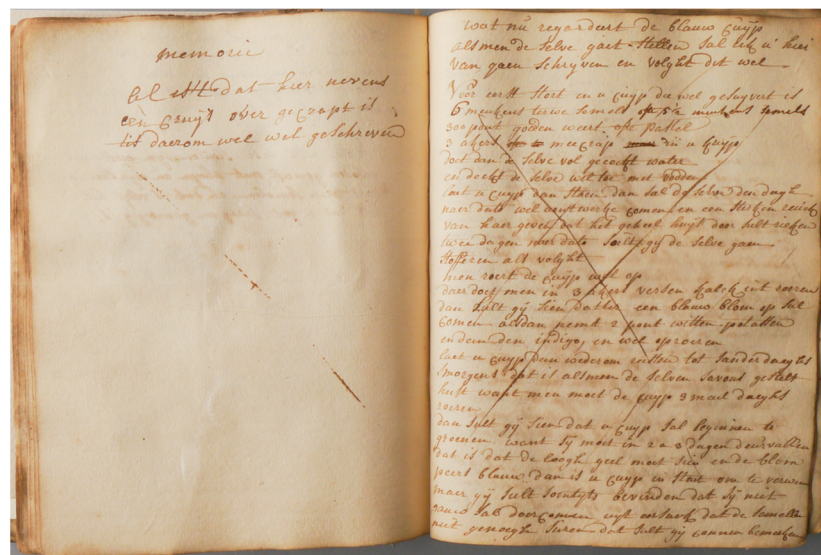 memorie
al ist dat hier nevens
een cruijs over gecrapt is
tis daerom wel wel geschreven
wat nu regardeert de blauw cuijp
alsmen de selve gaet stellen sal iek u hier
van gaen schryven en volght dit wel
Voor eerst stort en u cuijp die wel gesuyvert is
6 meukens terwe semels ofte 5½ meukens semels
300 pont goeden weert ofte pastel
3 akers meecrap in u cuijp
doet dan de selve vol gecoockt water
en deckt de selve wel toe met vodden
laet u cuyp dan staen dan sal de selve den dagh
naer dato wel aen wercke comen en een stercken reuck
van haer geven dat het geheel huijs door sult riecken
twee dagen naer dato sult gij de selve gaen
stofferen als volght
men roert de cuijp wel op
daer doet men in 3 akers versen kalck ent roeren
dan sult gij sien datter een blauw blom op sal
comen alsdan nemt 2 pont witten potassen
ende den indigo, en wel oproeren
laet u cuyp dan wederom rusten tot sanderdaeghs
smorgens dat is alsmen de selven savons gestelt
heeft want men moet de cuyp 3 mael daeghs
roeren
dan sult gij sien dat u cuyp sal beginnen te
groenen want sij moet in 2 a 3 dagen deurvallen
dat is dat de loogh geel moet sien ende de blom
peers blauw dan is u cuyp in staet om te verwen
maer gij sult somtyts bevinden dat sij niet
gauw sal doorcommen uyt oorsaeck dat de semelen
niet genoegh suren dat sult gij connen bemercken